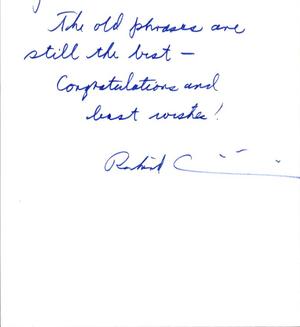 The old phrases are
still the best —
Congratulations and
best wishes!